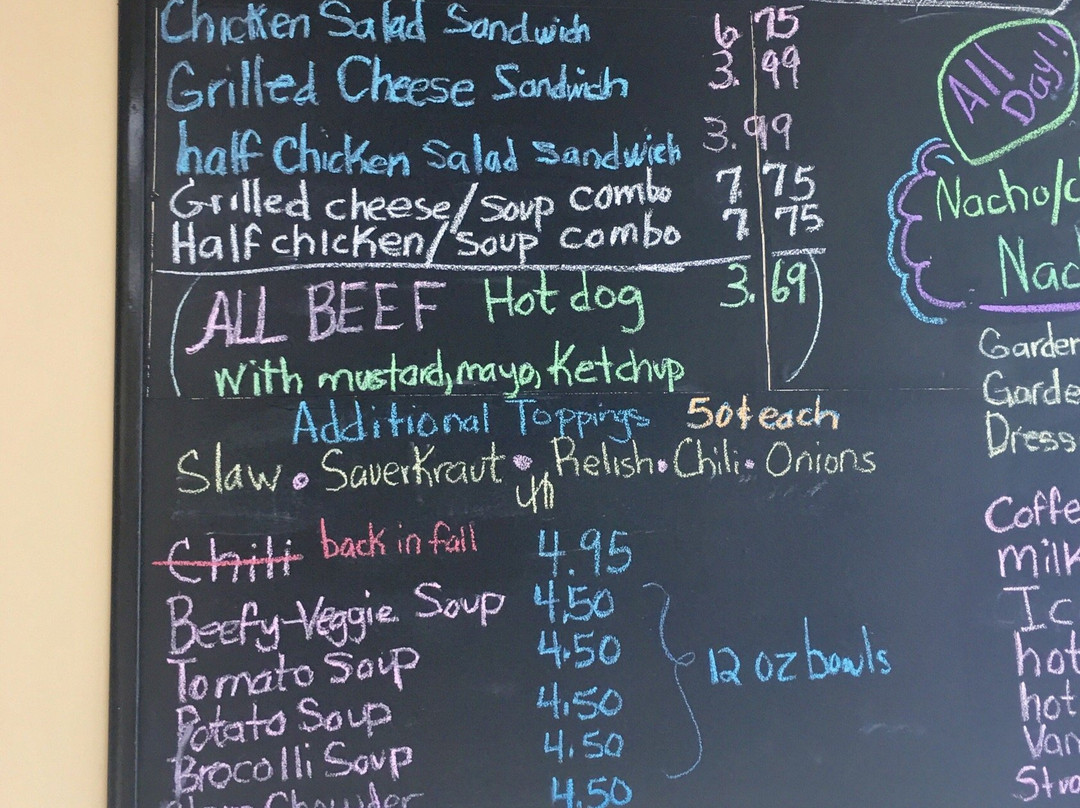 Chicken Salad Sandwich 6 75
Grilled Cheese Sandwich 3. 99
half Chicken Salad Sandwich 3.99
Grilled cheese/soup combo 7 75
Half chicken/soup combo 7 75
ALL BEEF Hot dog 3.69
with mustard, mayo, Ketchup
Additional Toppings 50¢ each
Slaw • Sauerkraut • Relish • Chili • Onions
Chili back in fall 4.95
Beefy-Veggie Soup 4.50
Tomato Soup 4.50
Potato Soup 4.50
Brocolli Soup 4.50
Chowder 4.50
12 oz bowls
All
Day!!
Nacho/c
Nac
Garden
Garde
Dress
Coffe
milk
Ic
hot
hot
Van